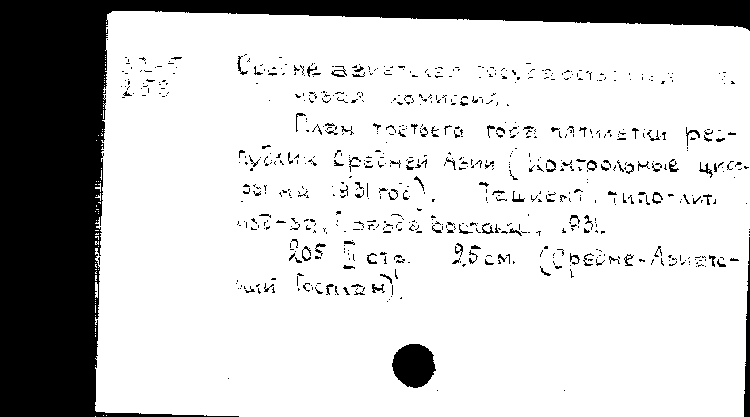 32-5
253
Средне азиатская государственная
новая комиссия.
План третьего года пятилетки рес-
публик Средней Азии (Контрольные циф-
ры на 1931 год). Ташкент, типо-лит.
изд-ва "Правда Востока", 1931.
205 II стр. 25 см. (Средне-Азиатс-
кий Госплан).